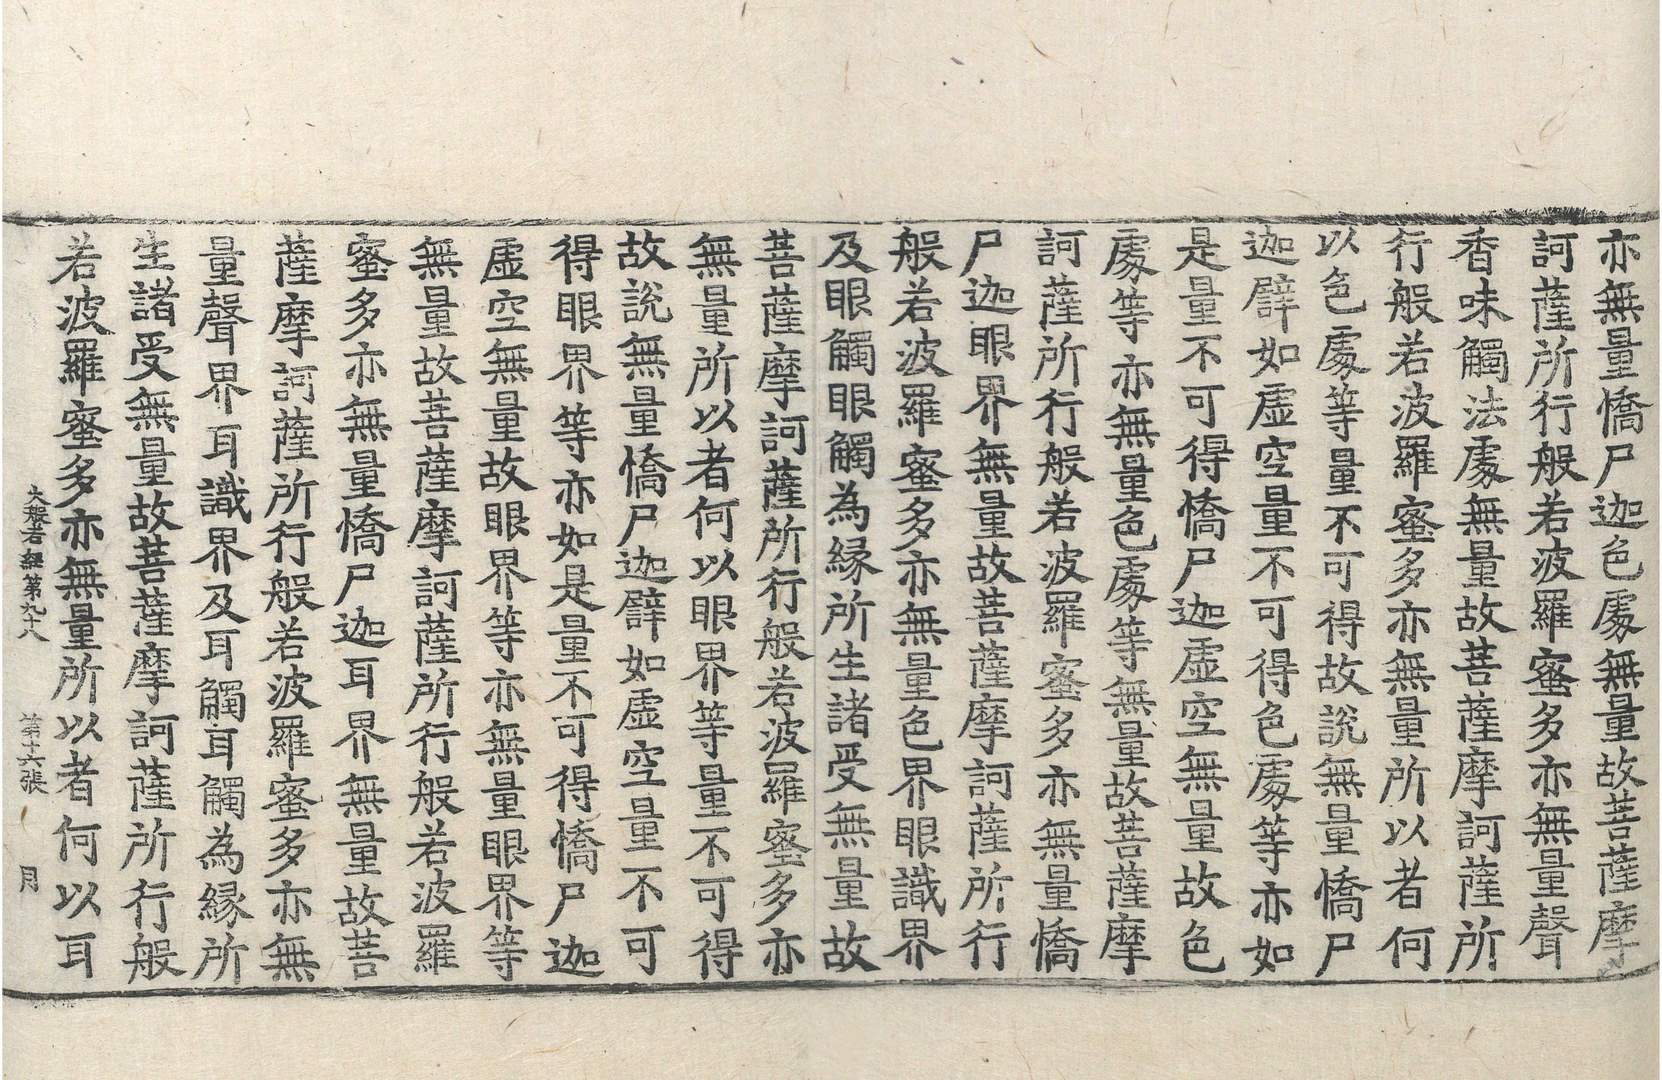 亦無量憍尸迦色處無量故菩薩摩
訶薩所行般若波羅蜜多亦無量聲
香味觸法處無量故菩薩摩訶薩所
行般若波羅蜜多亦無量所以者何
以色處等量不可得故說無量憍尸
迦譬如虛空量不可得色處等亦如
是量不可得憍尸迦虛空無量故色
處等亦無量色處等無量故菩薩摩
訶薩所行般若波羅蜜多亦無量憍
尸迦眼界無量故菩薩摩訶薩所行
般若波羅蜜多亦無量色界眼識界
及眼觸眼觸為緣所生諸受無量故
菩薩摩訶薩所行般若波羅蜜多亦
無量所以者何以眼界等量不可得
故說無量憍尸迦譬如虛空量不可
得眼界等亦如是量不可得憍尸迦
虛空無量故眼界等亦無量眼界等
無量故菩薩摩訶薩所行般若波羅
蜜多亦無量憍尸迦耳界無量故菩
薩摩訶薩所行般若波羅蜜多亦無
量聲界耳識界及耳觸耳觸為緣所
生諸受無量故菩薩摩訶薩所行般
若波羅蜜多亦無量所以者何以耳
大般若經第九十八 第十六張 月